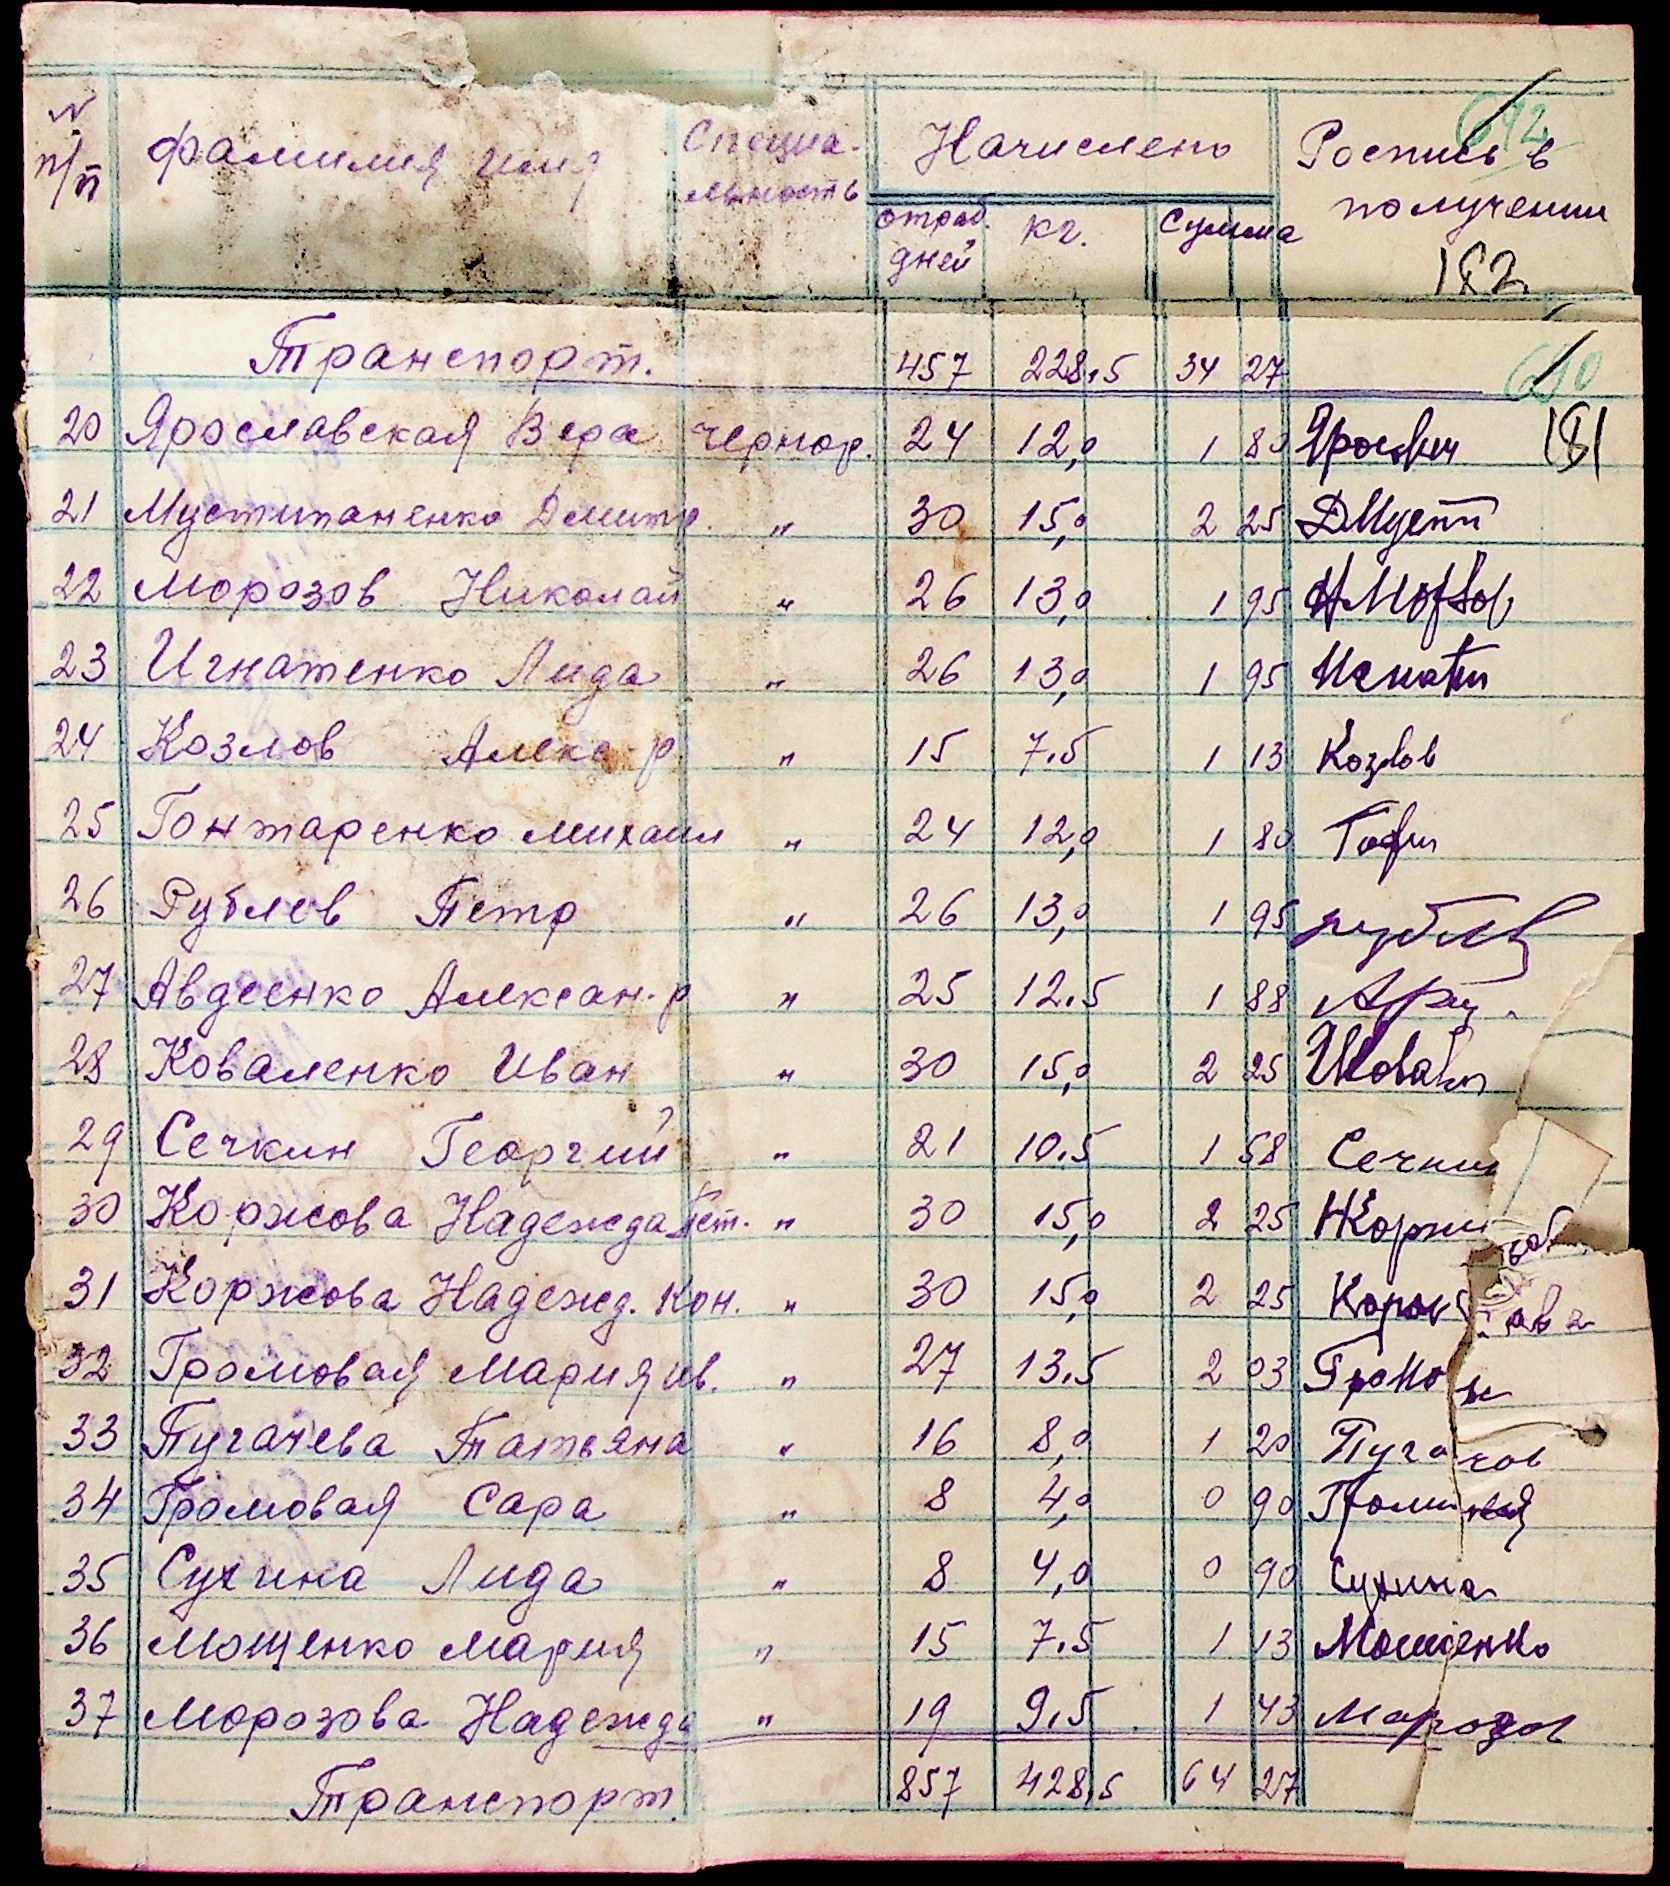 N п/п Фамилия Имя Специальность Начислено Роспись в получении
отраб. дней кг. Сумма
182
Транспорт. 457 228,5 34 27
181
20 Ярославская Вера чернор. 24 12,0 1 80
21 Мустипаненко Дмитр. " 30 15,0 2 25 ДМусти
22 Морозов Николай " 26 13,0 1 95
23 Игнатенко Лида " 26 13,0 1 95
24 Козлов Алекс-р " 15 7,5 1 13 Козлов
25 Гонтаренко Михаил " 24 12,0 1 80
26 Рублев Петр " 26 13,0 1 95 рублев
27 Авдеенко Алексан-р " 25 12,5 1 88
28 Коваленко Иван " 30 15,0 2 25
29 Сечкин Георгий " 21 10,5 1 58 Сечкин
30 Коржова Надежда Пет. " 30 15,0 2 25
31 Коржова Надежд. Кон. " 30 15,0 2 25
32 Громовая Мария Ив. " 27 13,5 2 03
33 Пугачева Татьяна " 16 8,0 1 20 Пугачов
34 Громовая Сара " 8 4,0 0 90
35 Сухина Лида " 8 4,0 0 90 Сухина
36 Мощенко Мария " 15 7,5 1 13 Мощенко
37 Морозова Надежда " 19 9,5 1 43 Марозов
857 428,5 64 27
Транспорт.